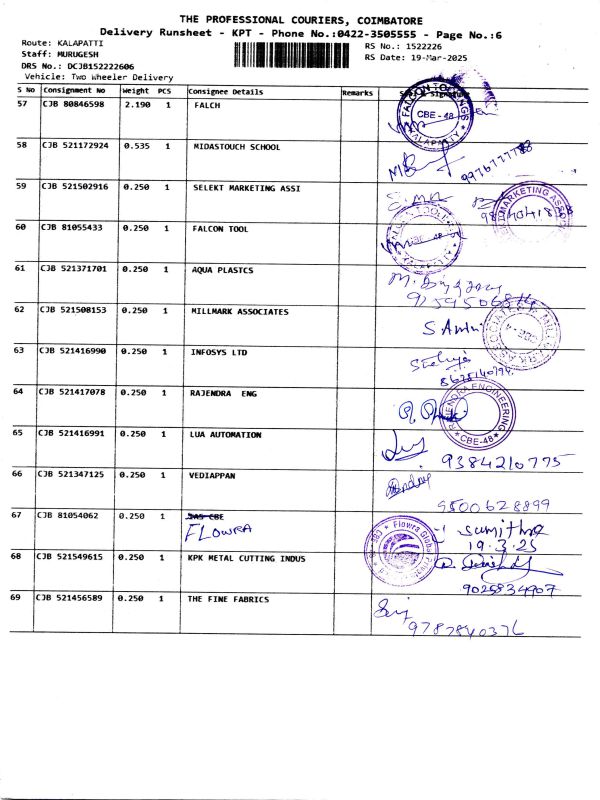 THE PROFESSIONAL COURIERS, COIMBATORE
Delivery Runsheet - KPT - Phone No.:0422-3505555 - Page No.:6
Route: KALAPATTI
Staff: MURUGESH
DRS No.: DCJB152222606
Vehicle: Two Wheeler Delivery
RS No.: 1522226
RS Date: 19-Mar-2025
S No Consignment No Weight PCS Consignee Details Remarks
57 CJB 80846598 2.190 1 FALCH
CBE - 48
58 CJB 521172924 0.535 1 MIDASTOUCH SCHOOL
59 CJB 521502916 0.250 1 SELEKT MARKETING ASSI
60 CJB 81055433 0.250 1 FALCON TOOL
61 CJB 521371701 0.250 1 AQUA PLASTCS
62 CJB 521508153 0.250 1 MILLMARK ASSOCIATES
63 CJB 521416990 0.250 1 INFOSYS LTD
64 CJB 521417078 0.250 1 RAJENDRA ENG
RAJENDRA ENGINEERING
CBE-48
65 CJB 521416991 0.250 1 LUA AUTOMATION
9384210775
66 CJB 521347125 0.250 1 VEDIAPPAN
9500628899
67 CJB 81054062 0.250 1
FLOWRA
Sumithra
19.3.25
68 CJB 521549615 0.250 1 KPK METAL CUTTING INDUS
9025834907
69 CJB 521456589 0.250 1 THE FINE FABRICS
9787840376